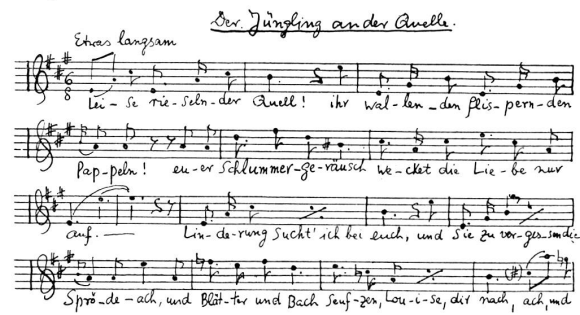 Der Jüngling an der Quelle.
Etwas langsam
Lei-se rie-seln-der Quell! ihr wal-len-den flis-pern-den
Pap-peln! eu-er Schlummer-ge-räusch we-cket die Lie-be nur
auf. Lin-de-rung sucht' ich bei euch, und sie zu ver-ges-sen die
Sprö-de- ach, und Blät-ter und Bach seuf-zen, Lou-i-se, dir nach, ach, und